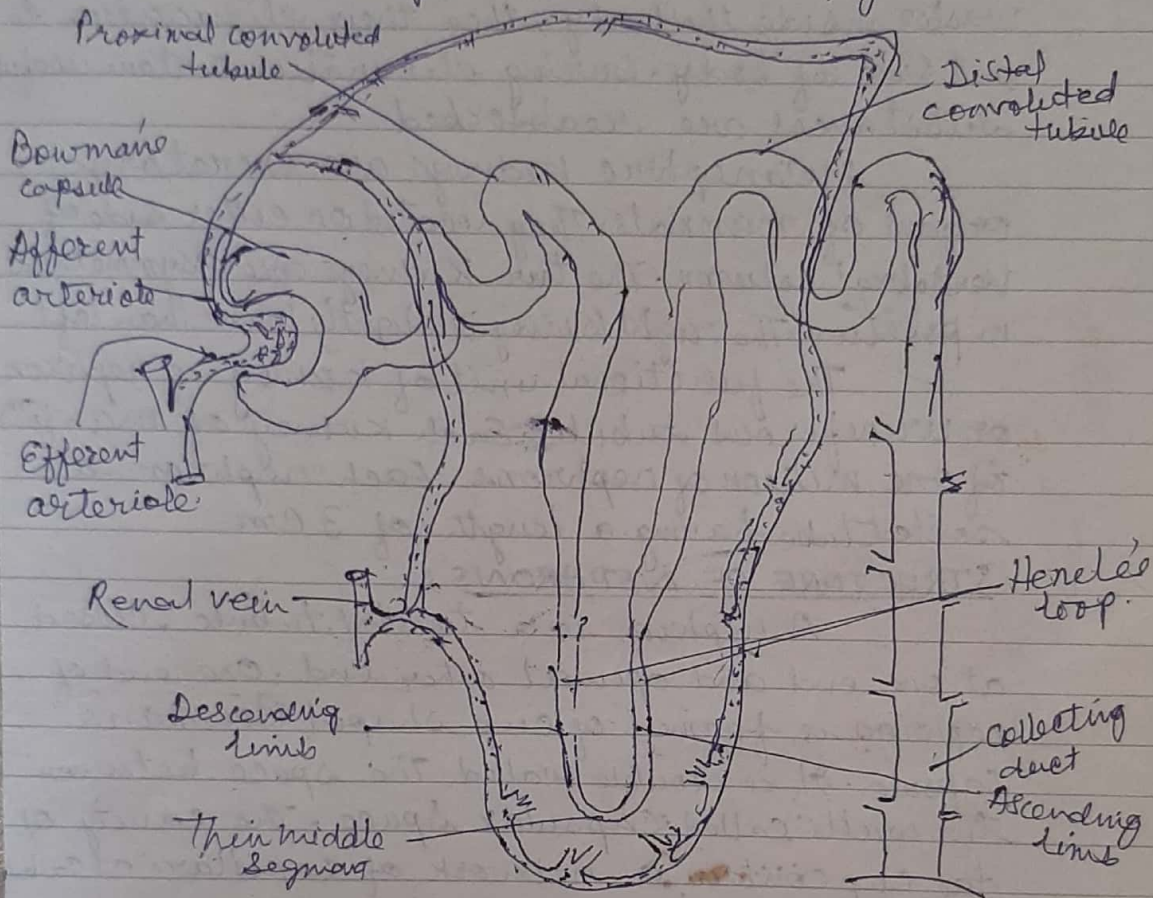 Proximal convoluted
tubule
Distal
convoluted
tubule
Bowman's
capsule
Afferent
arteriole
Efferent
arteriole.
Renal vein
Henele's
loop.
Descending
limb
Collecting
duct
Ascending
limb
Thin middle
segment